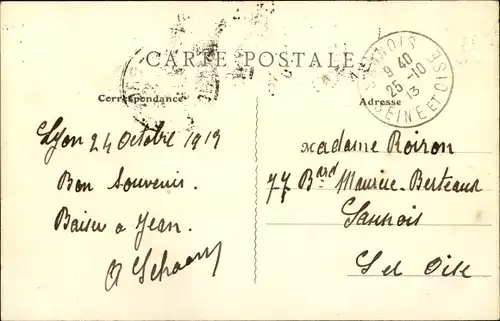 CARTE POSTALE
Correspondance
Adresse
SANNOIS
9 40
25 -10
13
SEINE ET OISE
Lyon 24 Octobre 1919
Bon Souvenir.
Baiser a Jean.
Madame Roiron
77 Bard Maurice-Berteaux
Sannois
S et Oise